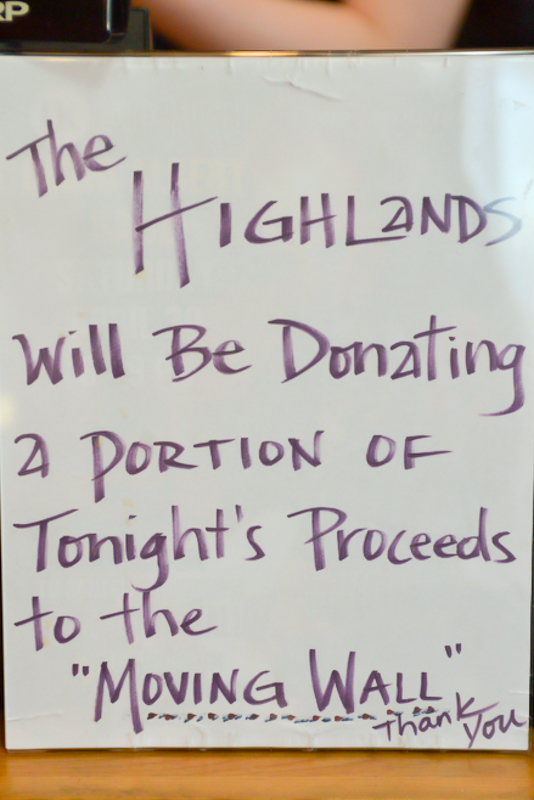 RP
The
HIGHLANDS
Will Be Donating
a PORTION OF
Tonight's Proceeds
to the
"MOVING WALL"
Thank
You